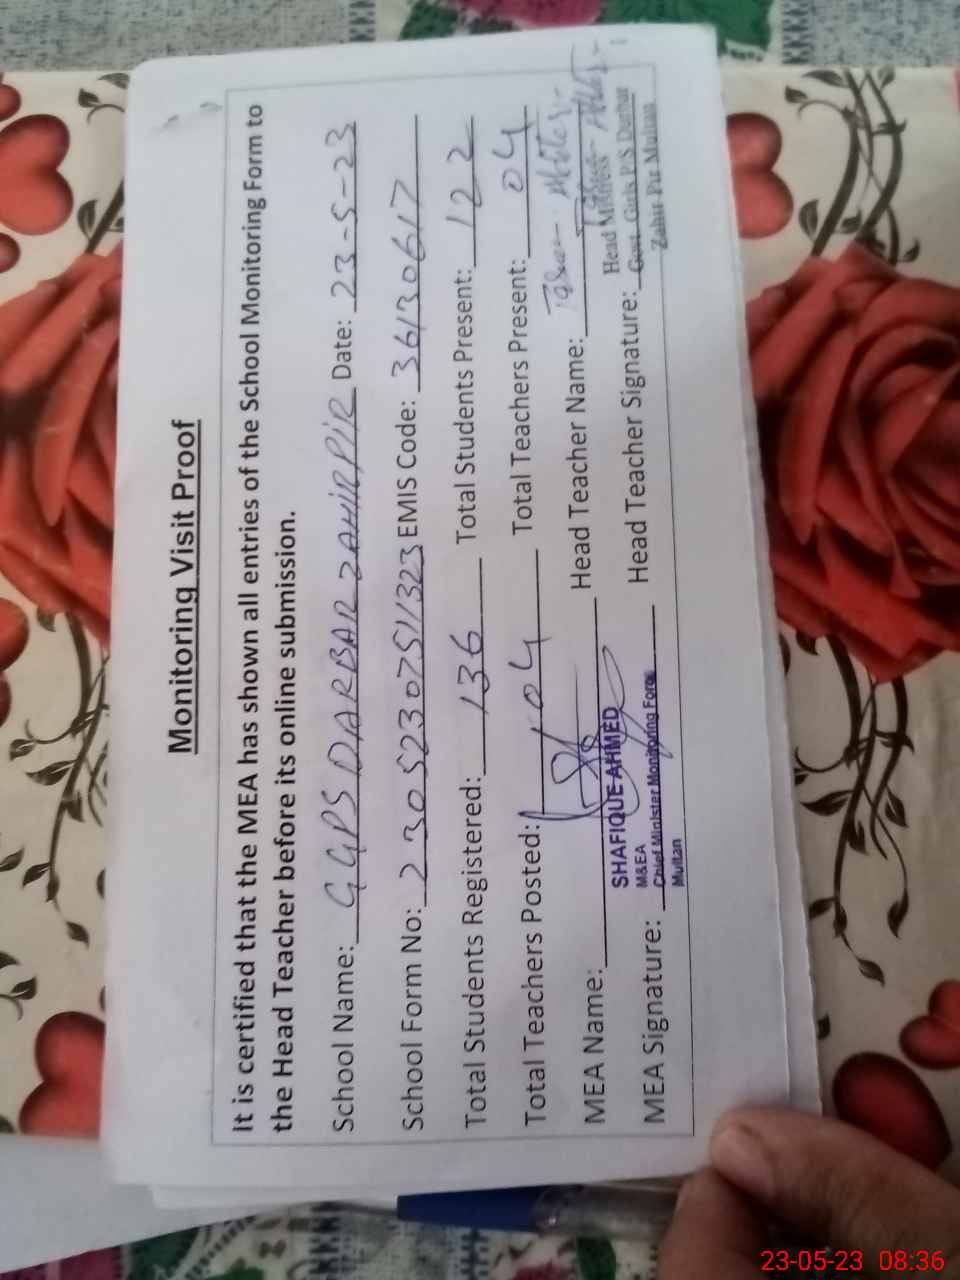 Monitoring Visit Proof
It is certified that the MEA has shown all entries of the School Monitoring Form to
the Head Teacher before its online submission.
School Name: GGPS DARBAR ZAHIRPIR Date: 23-5-23
School Form No: 23052307511323 EMIS Code: 36130617
Total Students Registered: 136 Total Students Present: 122
Total Teachers Posted: 04 Total Teachers Present: 04
MEA Name: Head Teacher Name:
SHAFIQUE AHMED
M&EA
MEA Signature: Chief Minister Monitoring Force
Multan
Head Teacher Signature:
Head Mistress
Govt. Girls P/S Darbar
Zahir Pir Multan
23-05-23 08:36